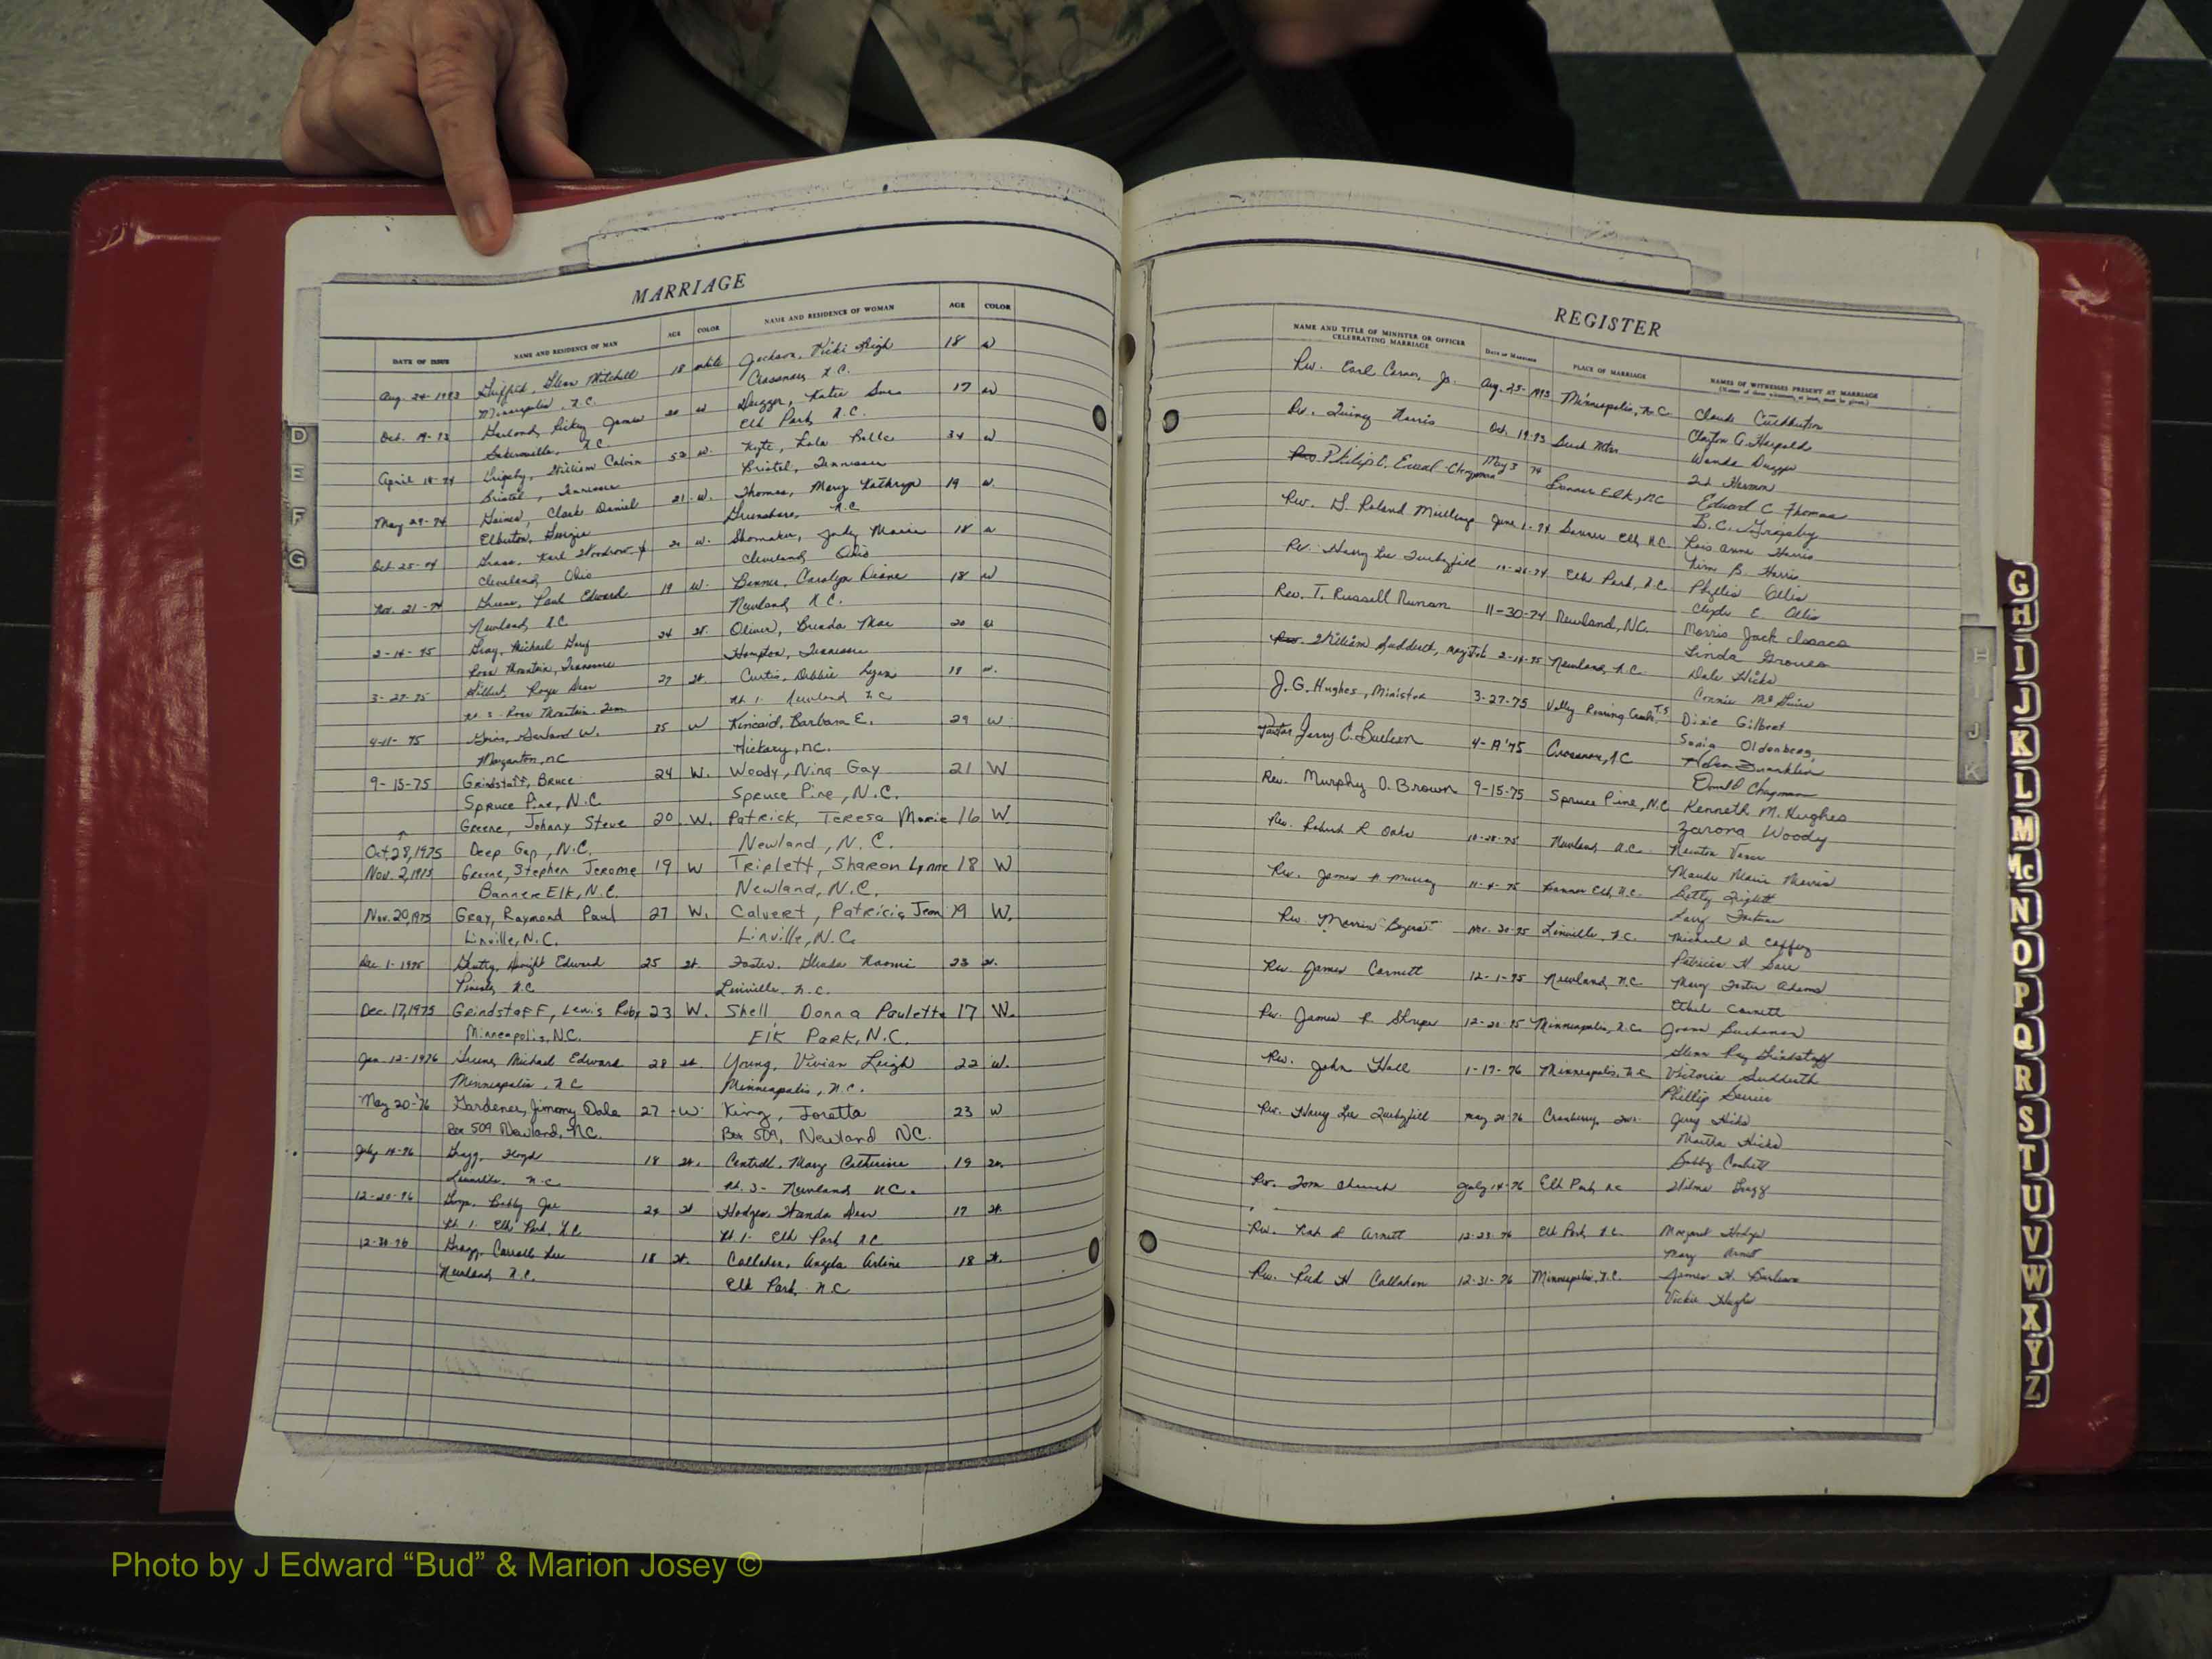 MARRIAGE
DATE OF ISSUE NAME AND RESIDENCE OF MAN AGE COLOR NAME AND RESIDENCE OF WOMAN AGE COLOR
Aug. 24-1973 Griffith, Glenn Mitchell 18 white Jackson, Vicki Leigh 18 W
Minneapolis, N.C. Crossnore, N.C.
Oct. 19-73 Garland, Ricky James 20 W Dugger, Katie Sue 17 W
N.C. Elk Park, N.C.
April 18-74 Grigsby, William Calvin 52 W. Kyte, Lola Belle 34 W
Bristol, Tennessee Bristol, Tennessee
May 29-74 Gaines, Clark Daniel 21 W. Thomas, Mary Kathryn 19 W.
Elberton, Georgia Greensboro, N.C.
Oct 25-74 Karl Woodrow 20 W. Shomaker, Judy Marie 18 W
Cleveland, Ohio Cleveland, Ohio
Nov. 21-74 Greene, Paul Edward 19 W. Carolyn Diane 18 W
Newland, N.C. Newland, N.C.
2-14-75 Gray, Michael 24 W. Oliver, Brenda Mae 20 W
Roan Mountain, Tennessee Hampton, Tennessee
3-27-75 Gilbert, Roger Dean 27 W. Curtis, Debbie Lynn 18 W.
Rt. 2 Roan Mountain, Tenn Rt. 1. Newland N.C
4-11-75 Garland W. 35 W Kincaid, Barbara E. 29 W
Morganton, NC Hickory, NC.
9-15-75 Grindstaff, Bruce 24 W. Woody, Nina Gay 21 W
Spruce Pine, N.C. Spruce Pine, N.C.
Greene, Johnny Steve 20 W. Patrick, Teresa Marie 16 W.
Oct 28, 1975 Deep Gap, N.C. Newland, N.C.
Nov. 2, 1975 Greene, Stephen Jerome 19 W Triplett, Sharon Lynne 18 W
Banner Elk, N.C. Newland, N.C.
Nov. 20, 1975 Gray, Raymond Paul 27 W. Calvert, Patricia Jean 19 W.
Linville, N.C. Linville, N.C.
Dec 1-1975 Dwight Edward 25 W. Foster, Naomi 23 W.
Pineola, N.C Linville, N.C.
Dec. 17, 1975 Grindstaff, Lewis Roby 23 W. Shell Donna Paulette 17 W.
Minneapolis, N.C. Elk Park, N.C.
Jan. 12-1976 Greene, Michael Edward 28 W. Young, Vivian Leigh 22 W.
Minneapolis, N.C Minneapolis, N.C.
May 20-'76 Gardener, Jimmy Dale 27 W King, Joretta 23 W
Box 509 Newland, N.C. Box 509, Newland NC.
July 14-76 Gragg, Floyd 18 W. Cantrell, Mary Catherine 19 W.
Linville, N.C Rt. 3- Newland, N.C.
12-20-76 Bobby Joe 24 W Hodges, Wanda 17 W.
Rt. 1. Elk Park, N.C. Rt 1- Elk Park, N.C
12-30-76 Gragg, Carroll Lee 18 W. Callahan, Angela Arlene 18 W.
Newland, N.C. Elk Park, N.C
D
E
F
G
REGISTER
NAME AND TITLE OF MINISTER OR OFFICER CELEBRATING MARRIAGE Date of Marriage PLACE OF MARRIAGE NAMES OF WITNESSES PRESENT AT MARRIAGE
Rev. Earl Jr. Aug. 25-1973 Minneapolis, N.C. Claude Cuthbertson
Clayton A.
Rev. Quincy Harris Oct. 19-73 Beech Mtn Wanda Dugger
Philip C. Clergyman May 3 74 Banner Elk, NC Edward C. Thomas
B.C. Grigsby
Rev. G. Roland Mullinax June 1-74 Banner Elk, N.C. Lois Anne Harris
B. Harris
Rev. Harry Lee Turbyfill 10-26-74 Elk Park, N.C. Phyllis Ollis
Clyde E Ollis
Rev. T. Russell 11-30-74 Newland, N.C. Morris Jack Isaacs
Linda Groves
William Sudderth, 2-14-75 Newland, N.C. Dale Hicks
Connie McGuire
J. G. Hughes, Minister 3-27-75 Valley Dixie Gilbert
Sonia Oldenberg
Pastor Jerry C. 4-19'75 Crossnore, N.C Franklin
Donald Chapman
Rev. Murphy O. Brown 9-15-75 Spruce Pine, N.C Kenneth M. Hughes
Zarona Woody
Rev. Robert R 10-28-75 Newland, N.C. Newton Vance
Maude
Rev. James H Murray 11-4-75 Banner Elk, N.C. Betty Triplett
Rev. Nov. 20-75 Linville, N.C. Michael D Caffery
Patricia H.
Rev James Cornett 12-1-75 Newland, N.C Mary Foster Adams
Ethel Cornett
Rev. James R. 12-20-75 Minneapolis, N.C. Buchanan
Glenn Ray Grindstaff
Rev. John Hall 1-17-76 Minneapolis, N.C Victoria Sudderth
Phillip
Rev. Harry Lee Turbyfill May 21 76 Cranberry, Jerry Hicks
Martha Hicks
Bobby
Rev. Tom Church July 14-76 Elk Park, NC Wilma Gragg
Rev. R Arnett 12-23-76 Elk Park, N.C. Margaret Hodges
Mary
Rev. H Callahan 12-31-76 Minneapolis, N.C. James H.
Vickie
H
I
J
K
G
H
I
J
K
L
M
Mc
N
O
P
Q
R
S
T
U
V
W
X
Y
Z
Photo by J Edward “Bud” & Marion Josey ©